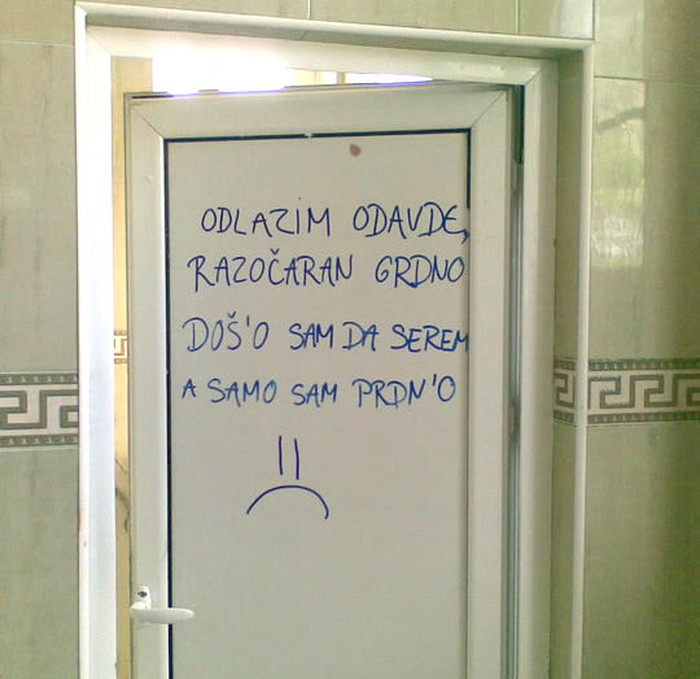 ODLAZIM ODAVDE,
RAZOČARAN GRDNO
DOŠ'O SAM DA SEREM
A SAMO SAM PRDN'O